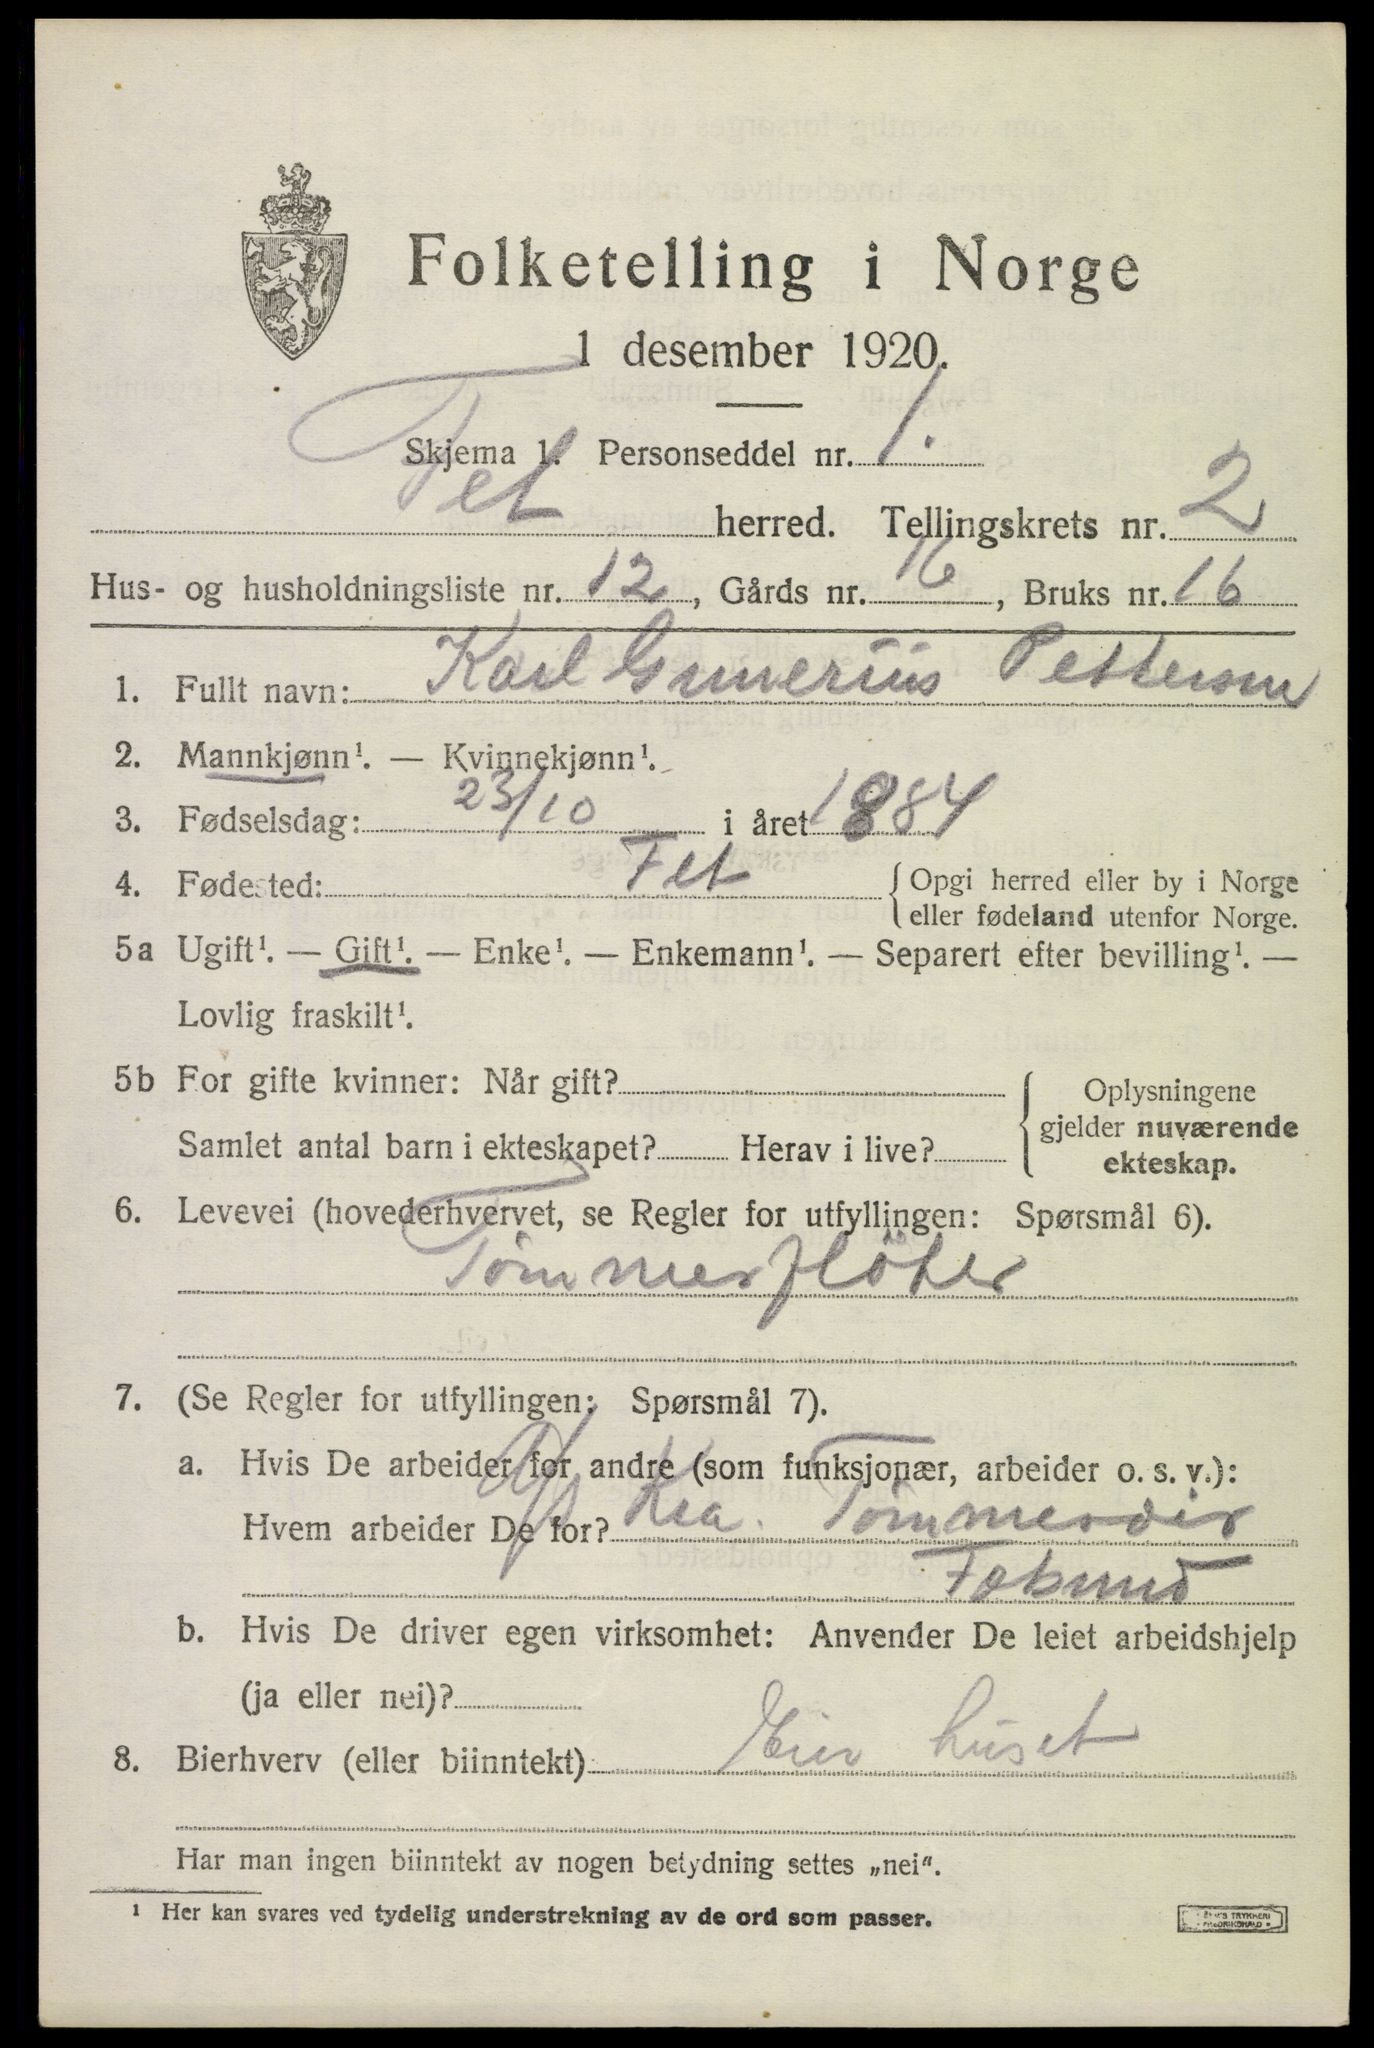 Folketelling i Norge
1 desember 1920.
Skjema 1. Personseddel nr. 1.
Fet herred. Tellingskrets nr. 2
Hus- og husholdningsliste nr. 12, Gårds nr. 16, Bruks nr. 16
1. Fullt navn: Karl Gunerius Pettersen
2. Mannkjønn¹. — Kvinnekjønn¹.
3. Fødselsdag: 23/10 i året 1884
4. Fødested: Fet {Opgi herred eller by i Norge
eller fødeland utenfor Norge.
5a Ugift¹. — Gift¹. — Enke¹. — Enkemann¹. — Separert efter bevilling¹. —
Lovlig fraskilt¹.
5b For gifte kvinner: Når gift?
Samlet antal barn i ekteskapet? Herav i live?
{Oplysningene
gjelder nuværende
ekteskap.
6. Levevei (hovederhvervet, se Regler for utfyllingen: Spørsmål 6).
Tømmerflöter
7. (Se Regler for utfyllingen: Spørsmål 7).
a. Hvis De arbeider for andre (som funksjonær, arbeider o. s. v.):
Hvem arbeider De for? Kra. Tömmerdir
Fetsund
b. Hvis De driver egen virksomhet: Anvender De leiet arbeidshjelp
(ja eller nei)?
8. Bierhverv (eller biinntekt) Eier huset
Har man ingen biinntekt av nogen betydning settes „nei“.
¹ Her kan svares ved tydelig understrekning av de ord som passer.
TRYKKERI
FREDRIKSHALD